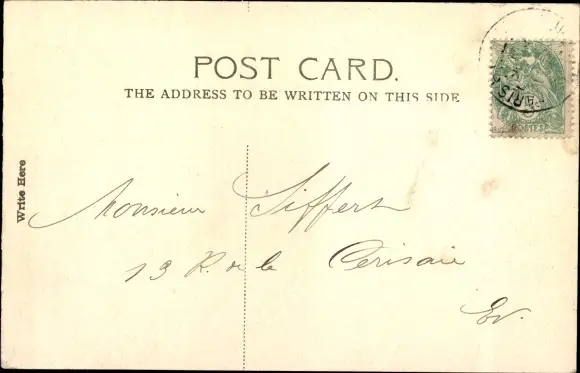 POST CARD.
THE ADDRESS TO BE WRITTEN ON THIS SIDE
PARIS
POSTES
Write Here
Monsieur Siffert
13 R. de la Cerisaie
Ev.